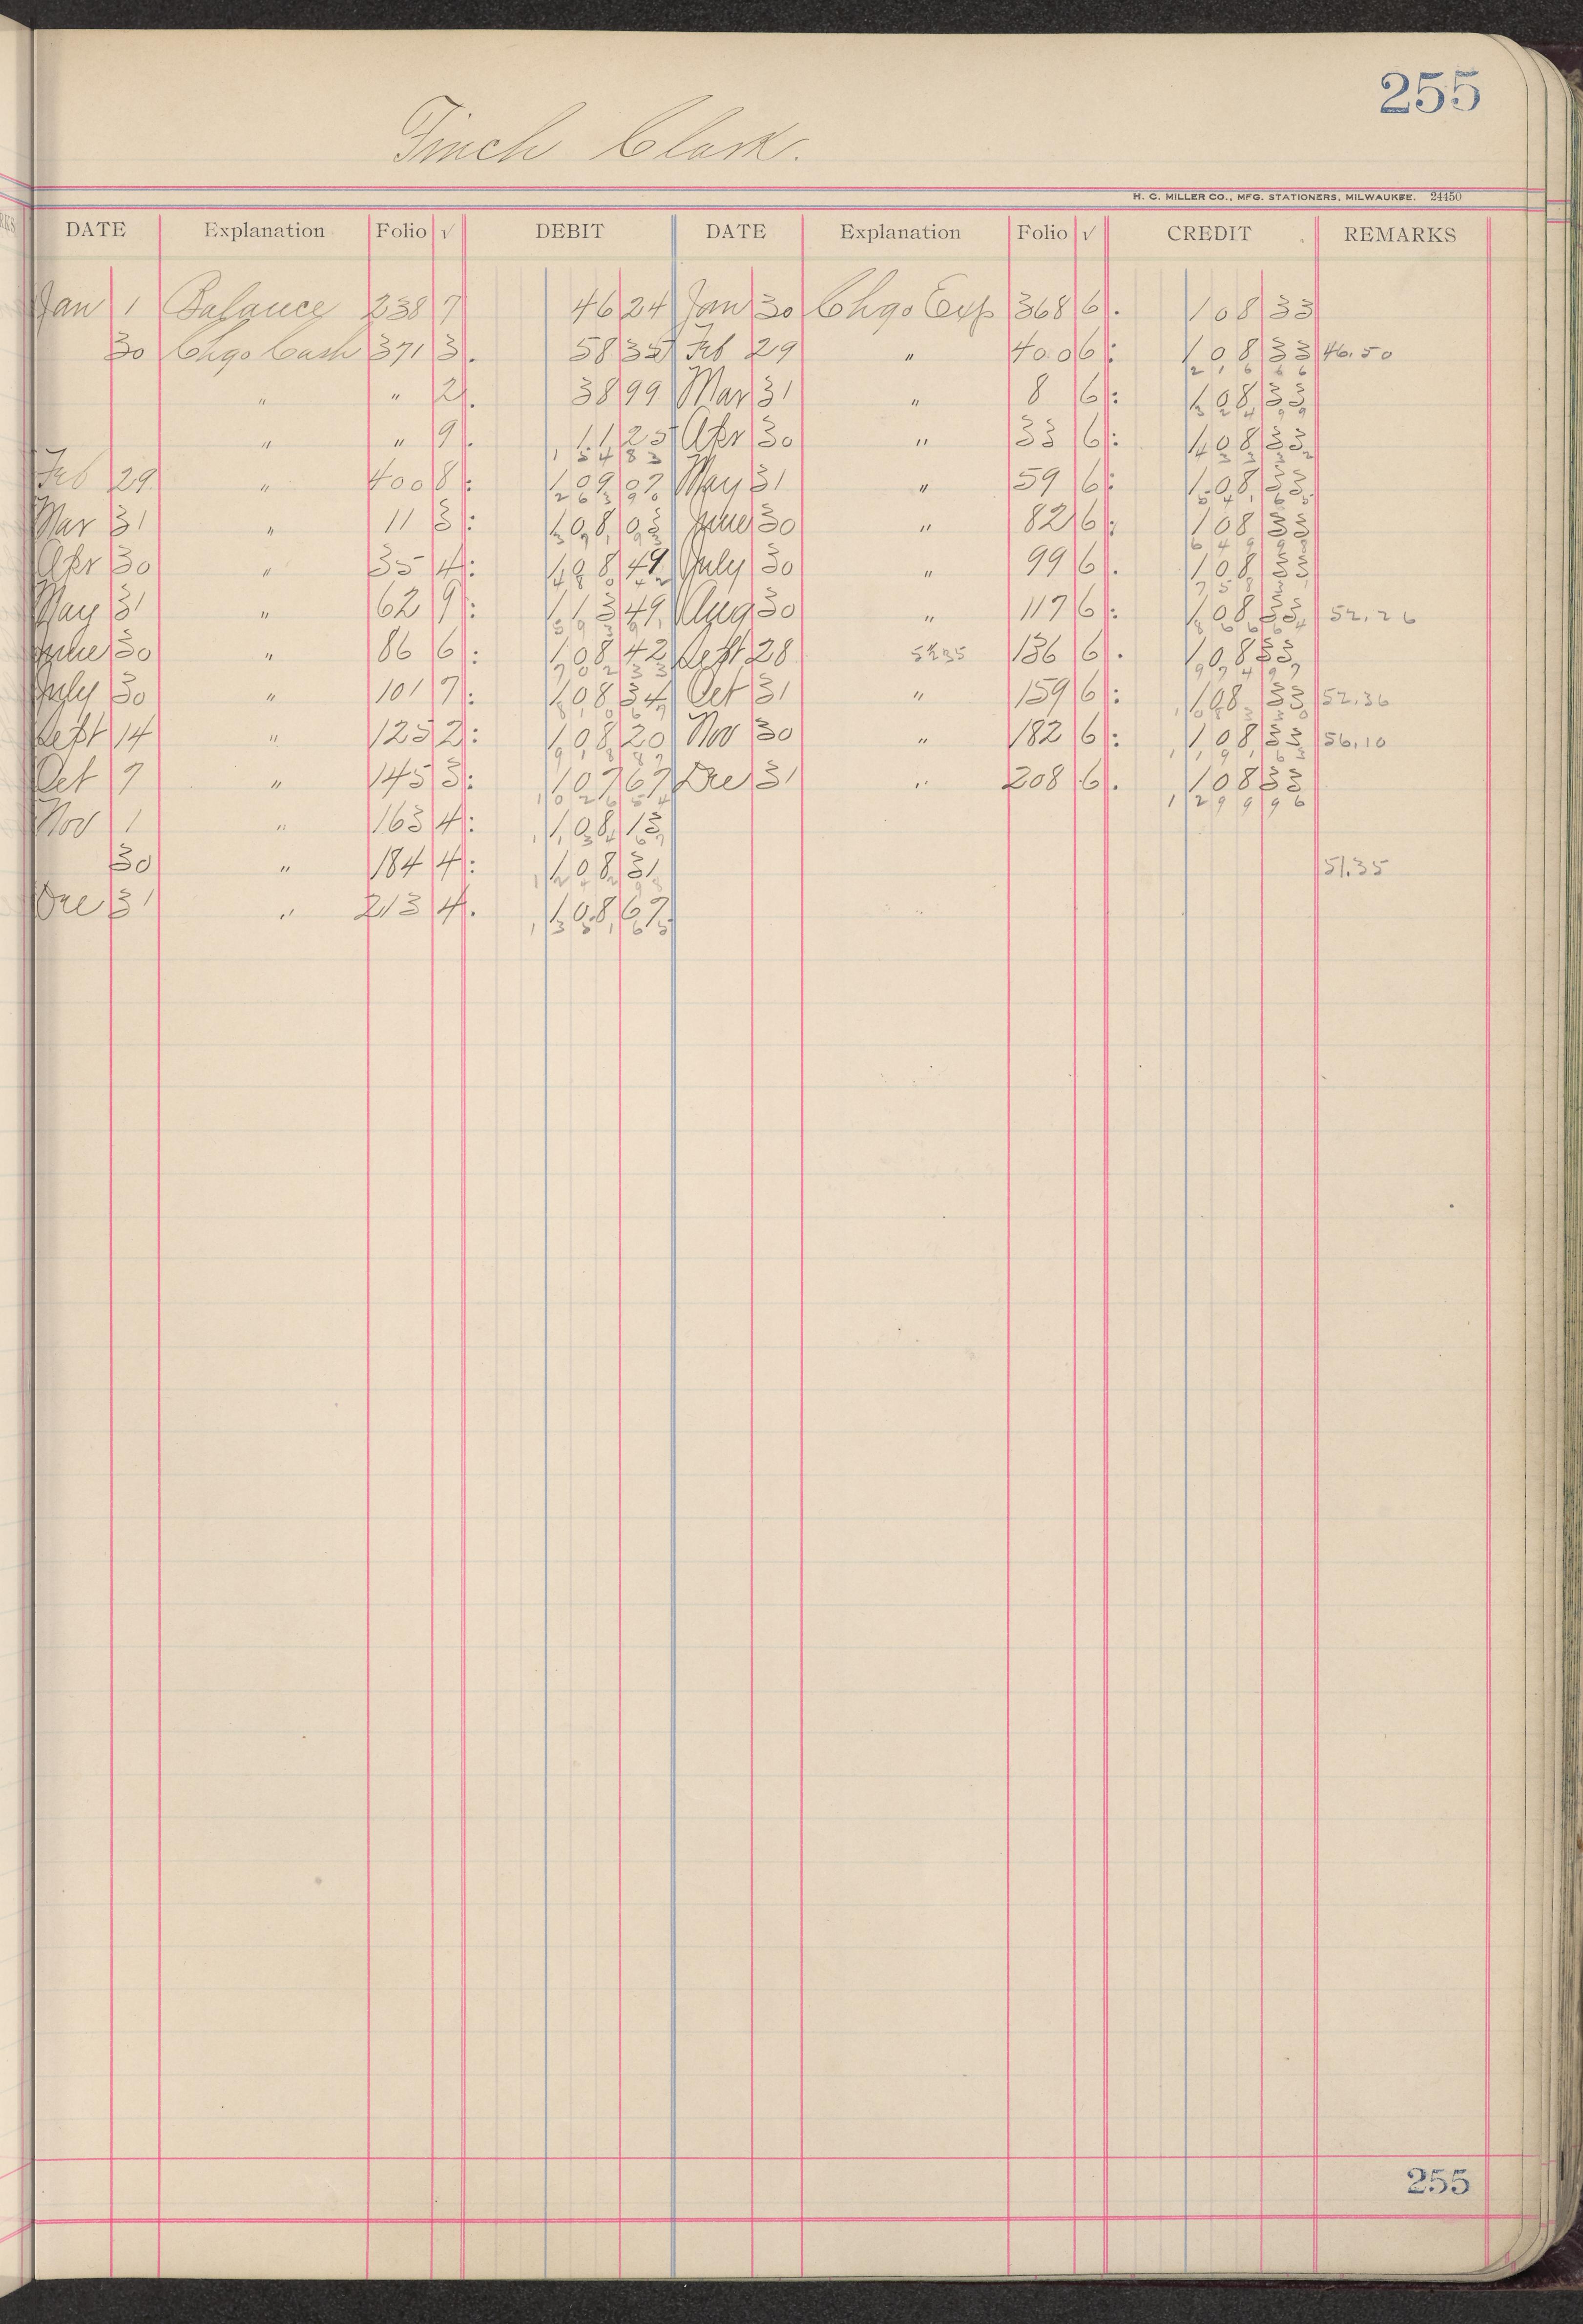 255
Finch Clark.
H. C. MILLER CO., MFG. STATIONERS, MILWAUKEE. 24450
DATE Explanation Folio √ DEBIT DATE Explanation Folio √ CREDIT REMARKS
Jan 1 Balance 238 7 46 24 Jan 30 Chgo Exp 368 6. 108 33
30 Chgo Cash 371 3. 58 35 Feb 29 " 400 6: 108 33 46.50
216 66
" " 2. 38 99 Mar 31 " 8 6: 108 33
324 99
" " 9. 11 25 Apr 30 " 33 6: 108 33
154 83 433 32
Feb 29 " 400 8: 109 07 May 31 " 59 6: 108 33
263 90 541 65
Mar 31 " 11 3: 108 03 June 30 " 82 6: 108 33
649 98
Apr 30 " 35 4: 108 49 July 30 " 99 6. 108 33
758 31
May 31 " 62 9: 113 49 Aug 30 " 117 6: 108 33 52.26
593 91 866 64
June 30 " 86 6: 108 42 Sept 28 52.35 136 6. 108 33
702 33 974 97
July 30 " 101 7: 108 34 Oct 31 " 159 6: 108 33 52.36
810 67 1083 30
Sept 14 " 125 2: 108 20 Nov 30 " 182 6: 108 33 56.10
918 87 1191 63
Oct 7 " 145 3: 107 67 Dec 31 " 208 6. 108 33
1026 54 1299 96
Nov 1 " 163 4: 108 13
1134 67
30 " 184 4: 108 31 51.35
1242 98
Dec 31 " 213 4. 108 67
1351 65
255